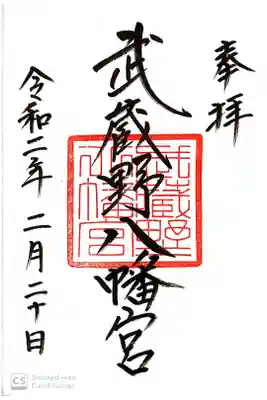 奉拝
武蔵野八幡宮
武蔵野八幡宮
令和二年 二月二十日
CS Scanned with
CamScanner